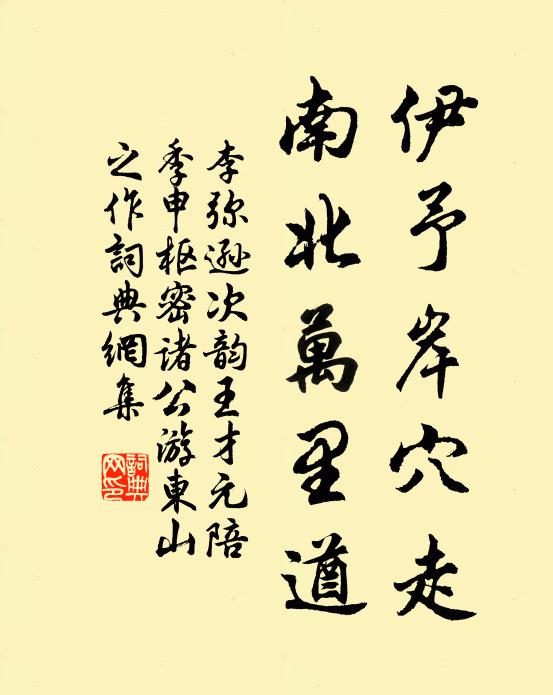 伊予岸穴走
南北萬里遒
李弥遜次韵王才元陪
季申枢密诸公游東山
之作詞典網集
詞典网印